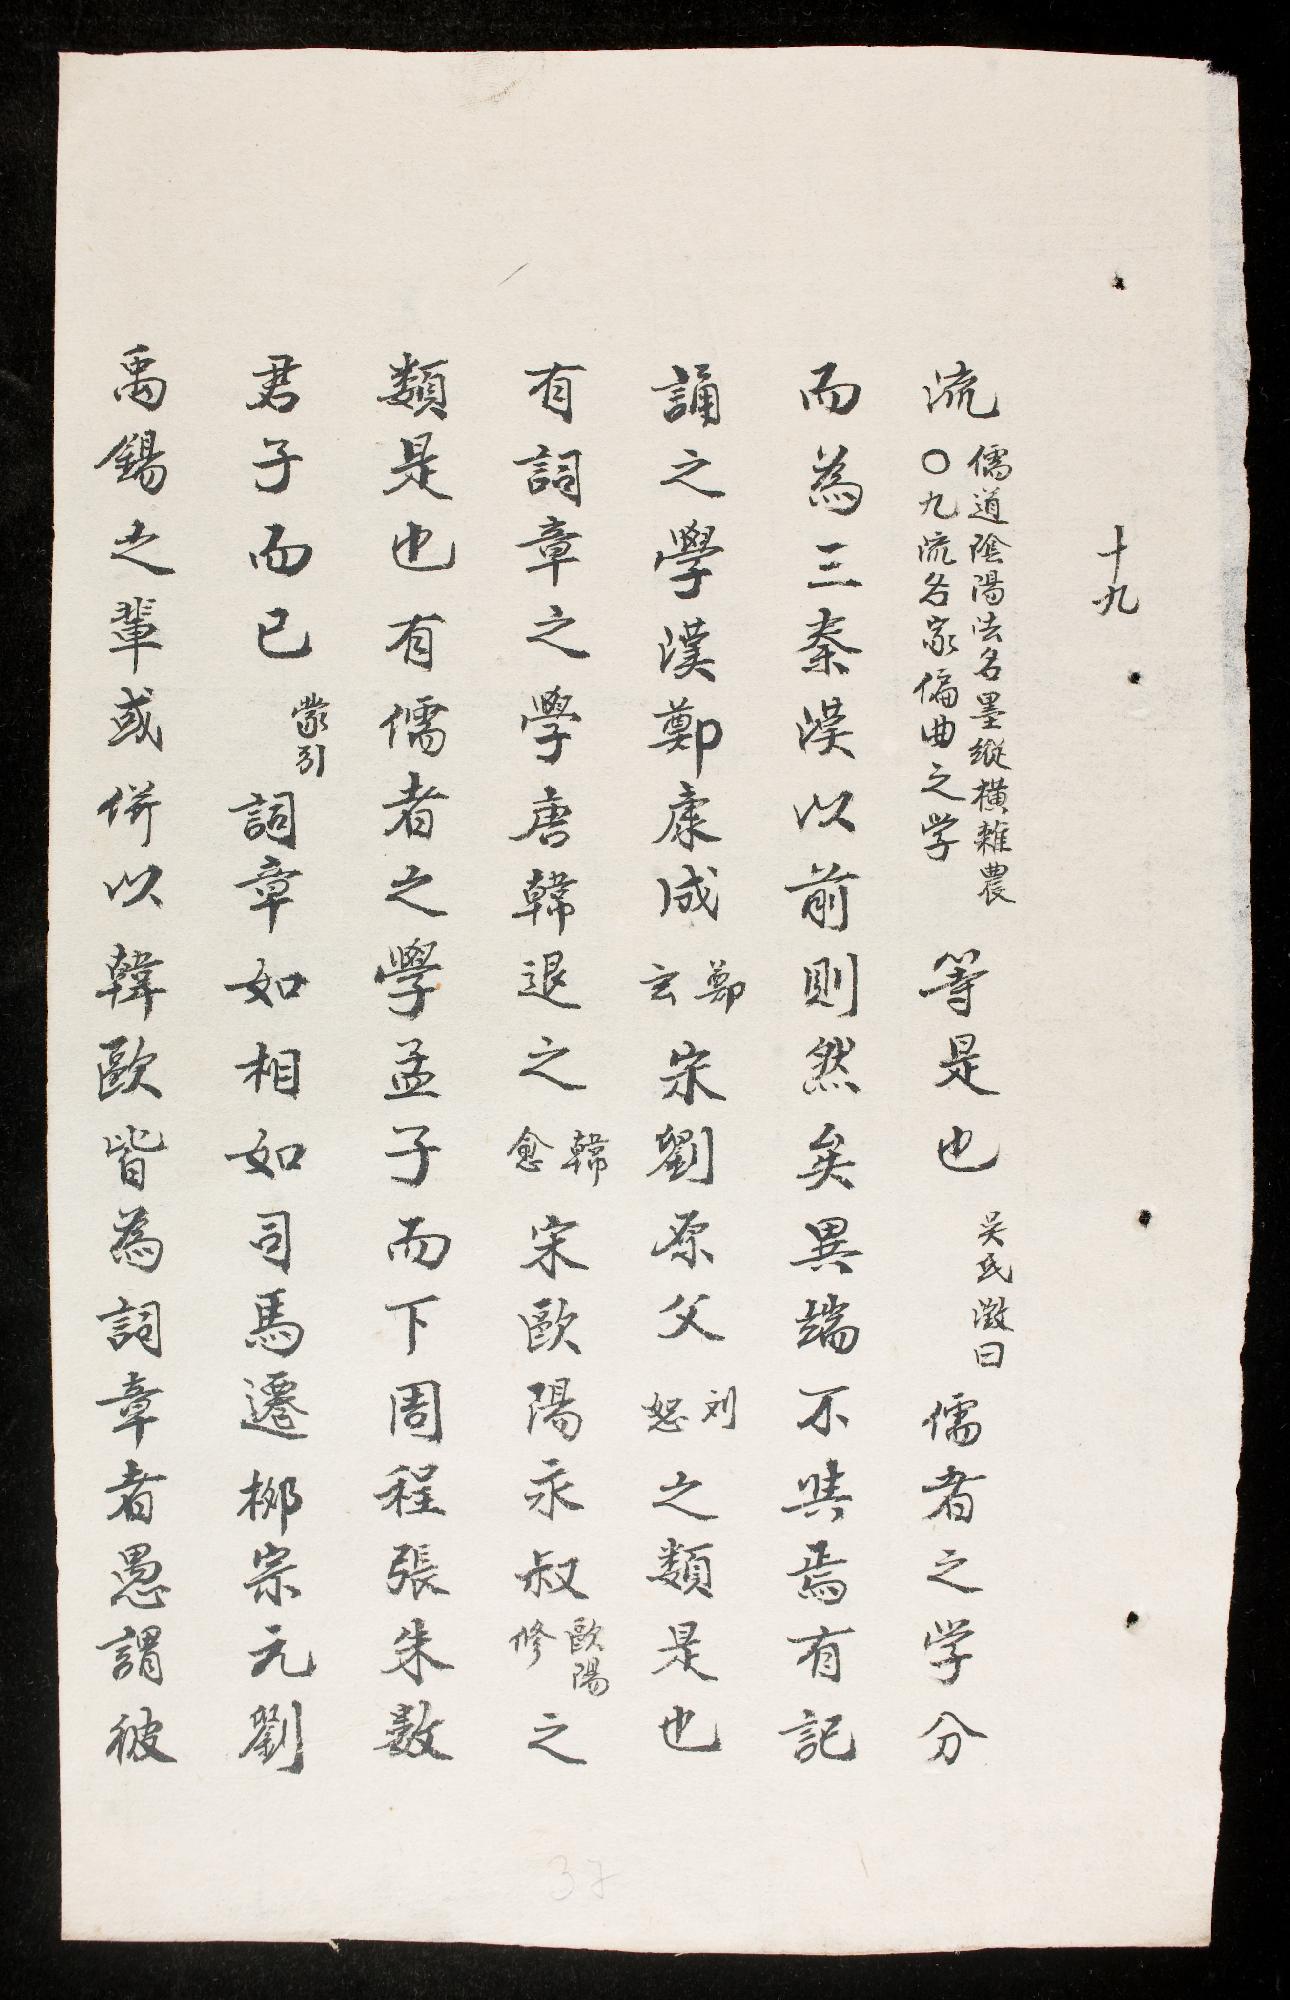 十九
流儒道陰陽法名墨縱橫雜農〇九流名家偏曲之学等是也吴氏澂曰儒者之学分
而為三秦漢以前則然矣異端不與焉有記
誦之學漢鄭康成鄭玄宋劉原父刘恕之類是也
有詞章之學唐韓退之韓愈宋歐陽永叔歐陽修之
類是也有儒者之學孟子而下周程張朱数
君子而已蒙引詞章如相如司馬遷栁宗元劉
禹錫之輩或併以韓歐皆為詞章者愚謂彼
37